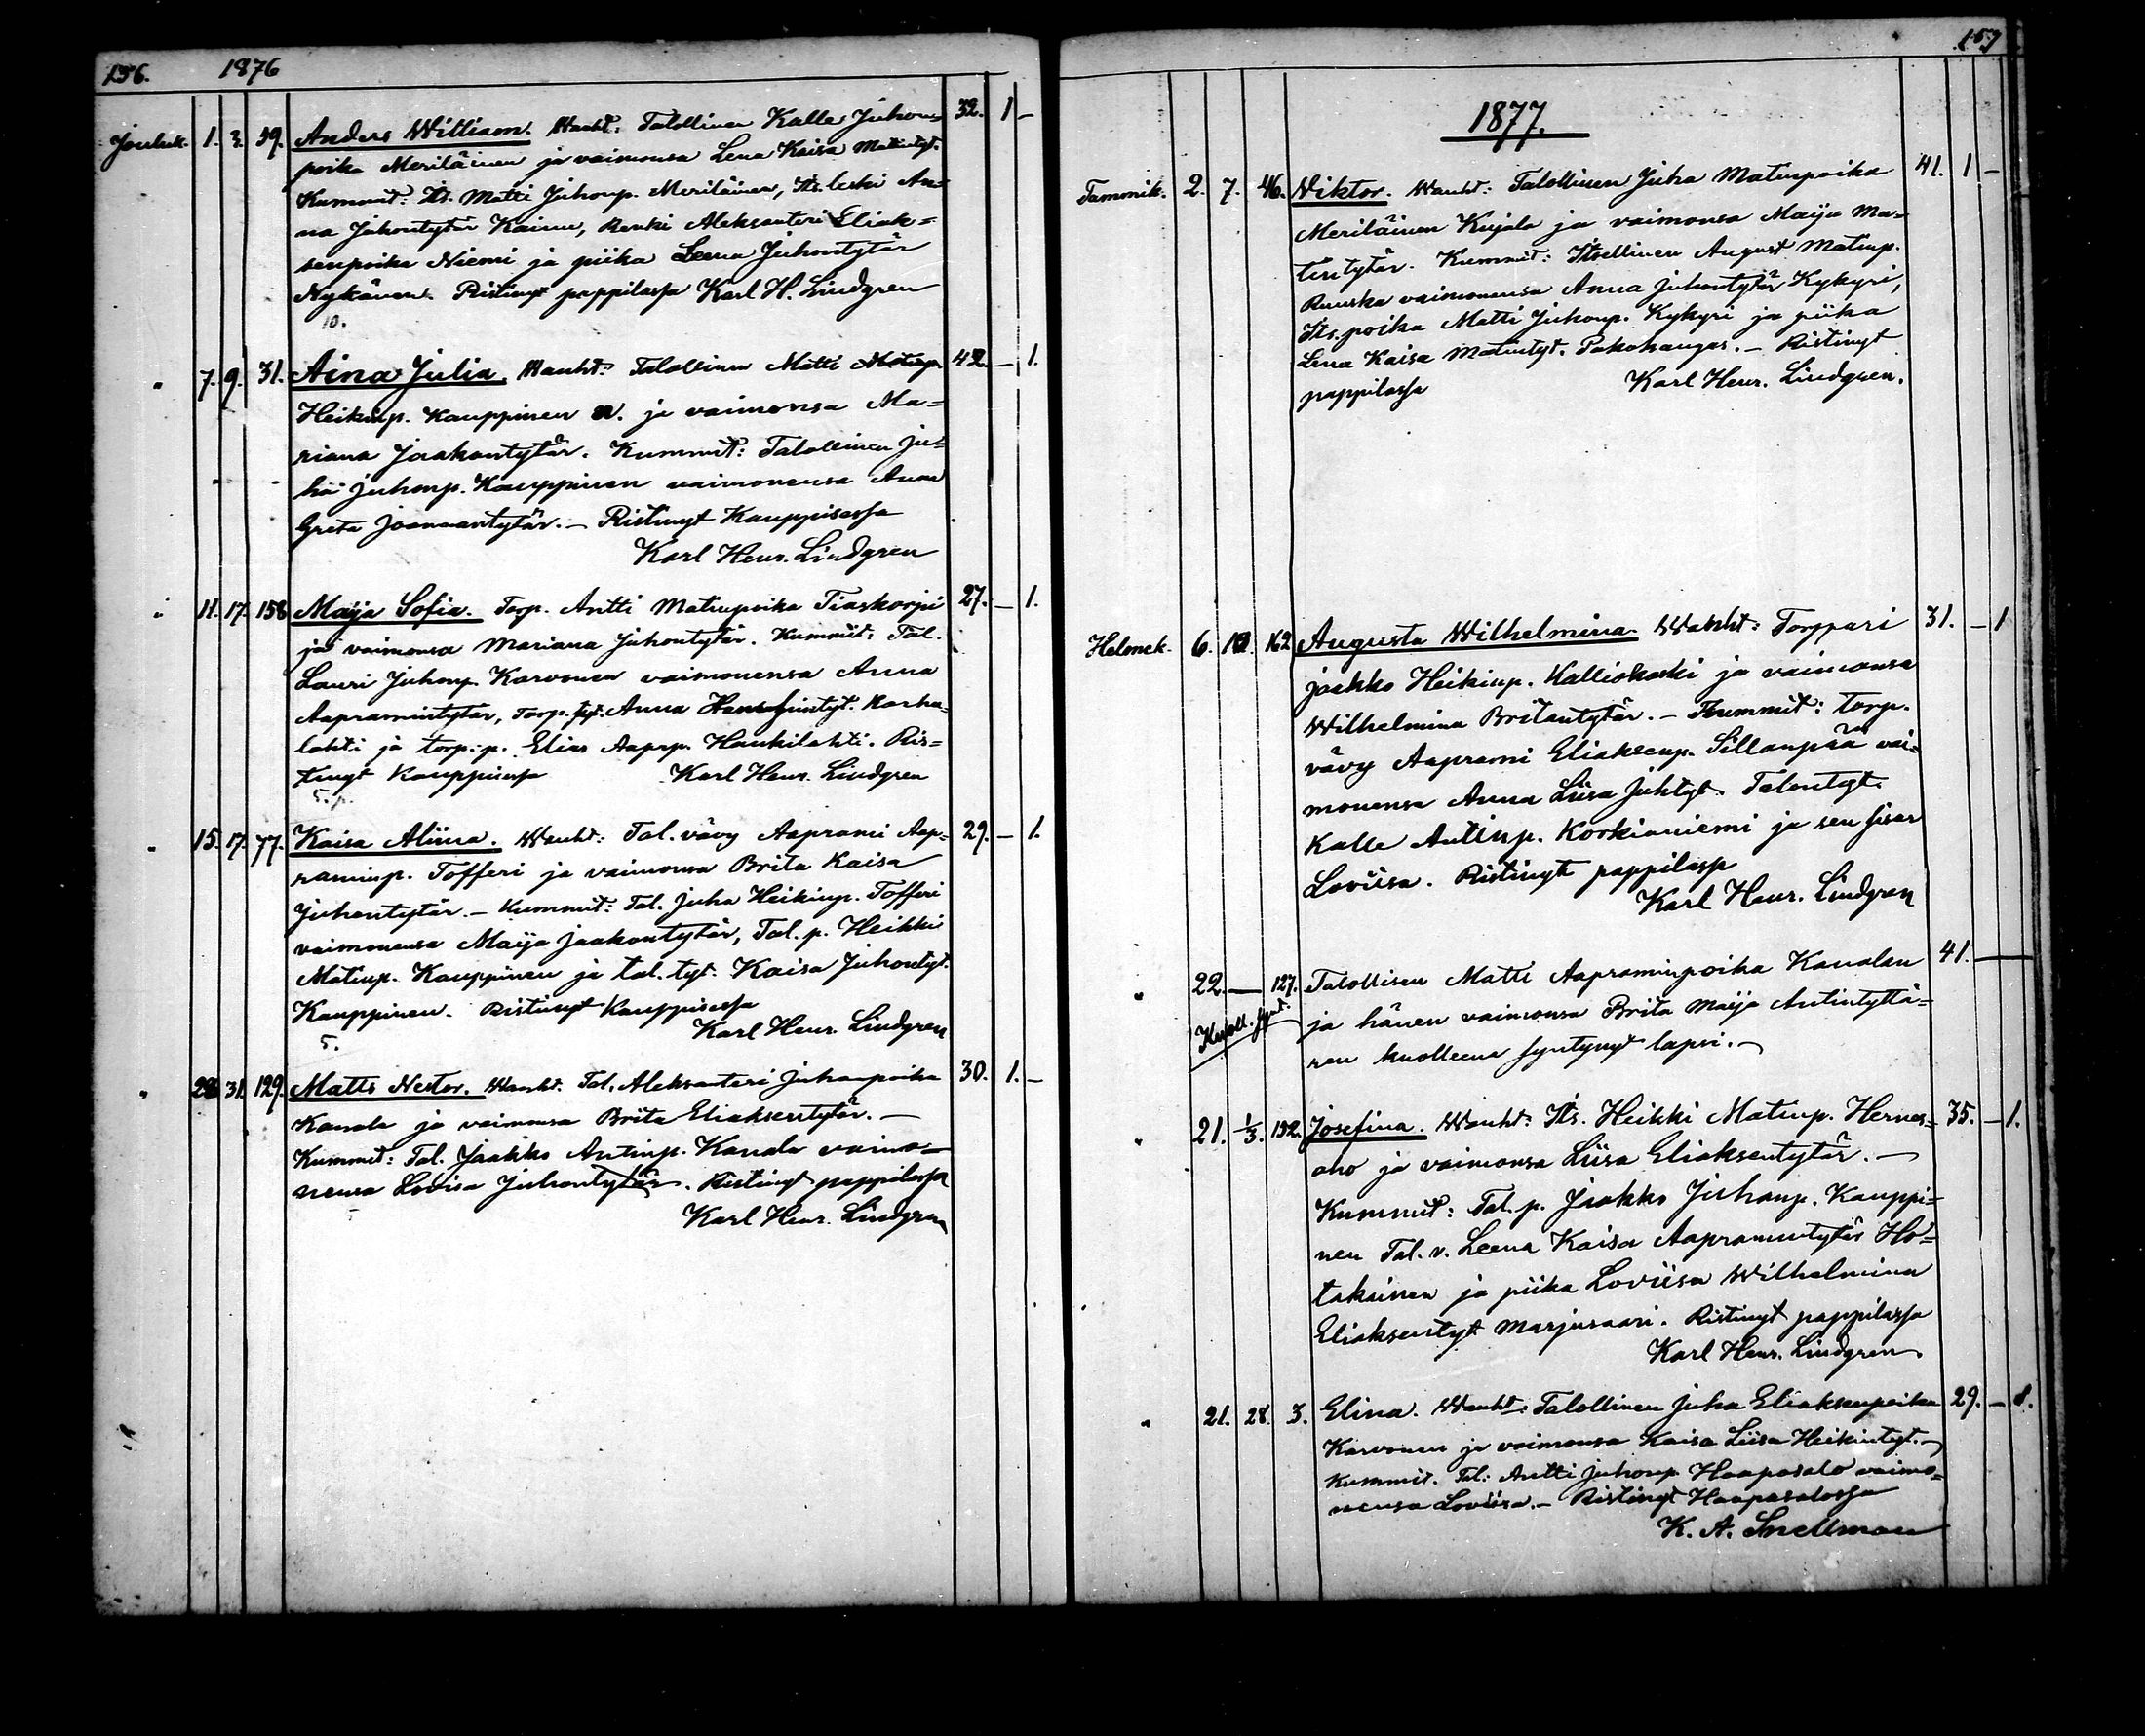 156. 1876
Jouluk. 1. 3. 39. Anders William. Wanht: Talollinen Kalle Juhon= 32. 1 –
poika Meriläinen ja vaimonsa Lena Kaisa Matintyt.
Kummit: Its. Matti Juhonp. Meriläinen, Its. leski An=
na Juhontytär Kainu, Renki Aleksanteri Eliak=
senpoika Niemi ja piika Leena Juhontytär
Nykänen. Ristinyt pappilassa Karl H. Lindgren
10.
" 7. 9. 31. Aina Julia. Wanht: Talollinen Matti Matinp. 42. – 1.
Heikinp. Kauppinen n. ja vaimonsa Ma=
riana Jaakontytär. Kummit: Talollinen Ju=
ha Juhonp. Kauppinen vaimonensa Anna
Greta Joonaantytär. – Ristinyt Kauppisessa
Karl Henr. Lindgren
" 11. 17. 158 Maija Sofia. Torp. Antti Matinpoika Tiaskorpi 27. – 1.
ja vaimonsa Mariana Juhontytär. Kummit: Tal.
Lauri Juhonp. Karvonen vaimonensa Anna
Aapramintytär, Torp. tyt. Anna Karha=
lahti ja torp. p. Elias Aaprp. Haukilahti. Ris=
tinyt Kauppisessa Karl Henr. Lindgren
5. p.
" 15. 17. 77. Kaisa Aliina. Wanht: Tal. vävy Aaprami Aap= 29. – 1.
raminp. Tofferi ja vaimonsa Brita Kaisa
Juhontytär. – Kummit: Tal. Juha Heikinp. Tofferi
vaimonensa Maija Jaakontytär, Tal. p. Heikki
Matinp. Kauppinen ja tal. tyt. Kaisa Juhontyt.
Kauppinen. Ristinyt Kauppisessa
Karl Henr. Lindgren
5.
" 31. 129. Matts Nestor. Wanht. Tal. Aleksanteri Juhonpoika 30. 1. –
Kanala ja vaimonsa Brita Eliaksentytär. –
Kummit: Tal. Jaakko Antinp. Kanala vaimo=
nensa Lovisa Juhontytär. Ristinyt pappilassa
Karl Henr. Lindgren
157
1877.
Tammik. 2. 7. 46. Viktor. Wanht: Talollinen Juha Matinpoika 41. 1 –
Meriläinen Kujala ja vaimonsa Maija Ma=
tintytär. Kummit: Itsellinen August Matinp.
Ruuska vaimonensa Anna Juhontytär Kykyri,
Its. poika Matti Juhonp. Kykyri ja piika
Lena Kaisa Matintyt. Pakokangas. – Ristinyt
pappilassa Karl Henr. Lindgren.
Helmek. 6. 162 Augusta Wilhelmina. Wanht: Torppari 31. – 1
Jaakko Heikinp. Kalliokoski ja vaimonsa
Wilhelmina Britantytär. – Kummit: Torp.
vävy Aaprami Eliaksenp. Sillanpää vai=
monensa Anna Liisa Juhtyt. Talontyt.
Kalle Antinp. Korkianiemi ja sen sisar
Loviisa. Ristinyt pappilassa
Karl Henr. Lindgren
" 22. — 127. Talollisen Matti Aapraminpoika Kanalan 41. —
Kuoll. synt. ja hänen vaimonsa Brita Maija Antintyttä=
ren kuolleena syntynyt lapsi. –
" 21. 1/3. 192. Josefina. Wanht: Its. Heikki Matinp. Hernes= 35. – 1.
aho ja vaimonsa Liisa Eliaksentytär. –
Kummit: Tal. p. Jaakko Juhonp. Kauppi=
nen Tal. v. Leena Kaisa Aapramintytär Ho=
takainen ja piika Loviisa Wilhelmina
Eliaksentyt Marjusaari. Ristinyt pappilassa
Karl Henr. Lindgren.
" 21. 28. 3. Elina. Wanht: Talollinen Juha Eliaksenpoika 29. – 1.
Karvonen ja vaimonsa Kaisa Liisa Heikintyt. –
Kummit. Tal: Antti Juhonp. Haapasalo vaimo=
nensa Loviisa. – Ristinyt Haapasalossa
K. A. Snellman